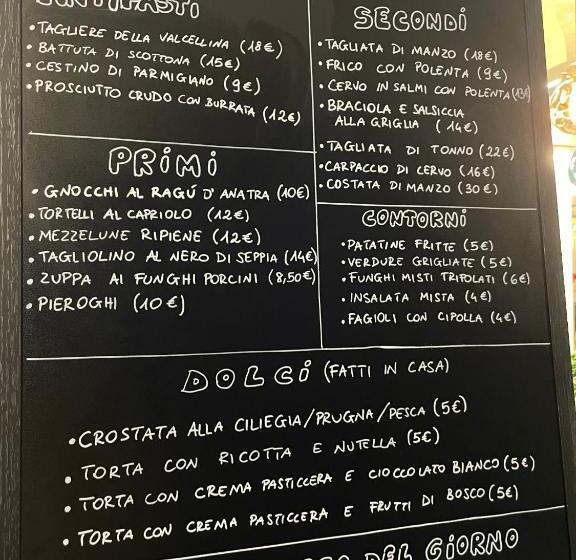 ANTIPASTI
• TAGLIERE DELLA VALCELLINA (18€)
• BATTUTA DI SCOTTONA (15€)
• CESTINO DI PARMIGIANO (9€)
• PROSCIUTTO CRUDO CON BURRATA (12€)
PRIMI
• GNOCCHI AL RAGÚ D'ANATRA (10€)
• TORTELLI AL CAPRIOLO (12€)
• MEZZELUNE RIPIENE (12€)
• TAGLIOLINO AL NERO DI SEPPIA (14€)
• ZUPPA AI FUNGHI PORCINI (8,50€)
• PIEROGHI (10€)
SECONDI
• TAGLIATA DI MANZO (18€)
• FRICO CON POLENTA (9€)
• CERVO IN SALMI CON POLENTA
• BRACIOLA E SALSICCIA
ALLA GRIGLIA (14€)
• TAGLIATA DI TONNO (22€)
• CARPACCIO DI CERVO (16€)
• COSTATA DI MANZO (30€)
CONTORNI
• PATATINE FRITTE (5€)
• VERDURE GRIGLIATE (5€)
• FUNGHI MISTI TRIFOLATI (6€)
• INSALATA MISTA (4€)
• FAGIOLI CON CIPOLLA (4€)
DOLCI (FATTI IN CASA)
• CROSTATA ALLA CILIEGIA/PRUGNA/PESCA (5€)
• TORTA CON RICOTTA E NUTELLA (5€)
• TORTA CON CREMA PASTICCERA E CIOCCOLATO BIANCO (5€)
• TORTA CON CREMA PASTICCERA E FRUTTI DI BOSCO (5€)
DEL GIORNO